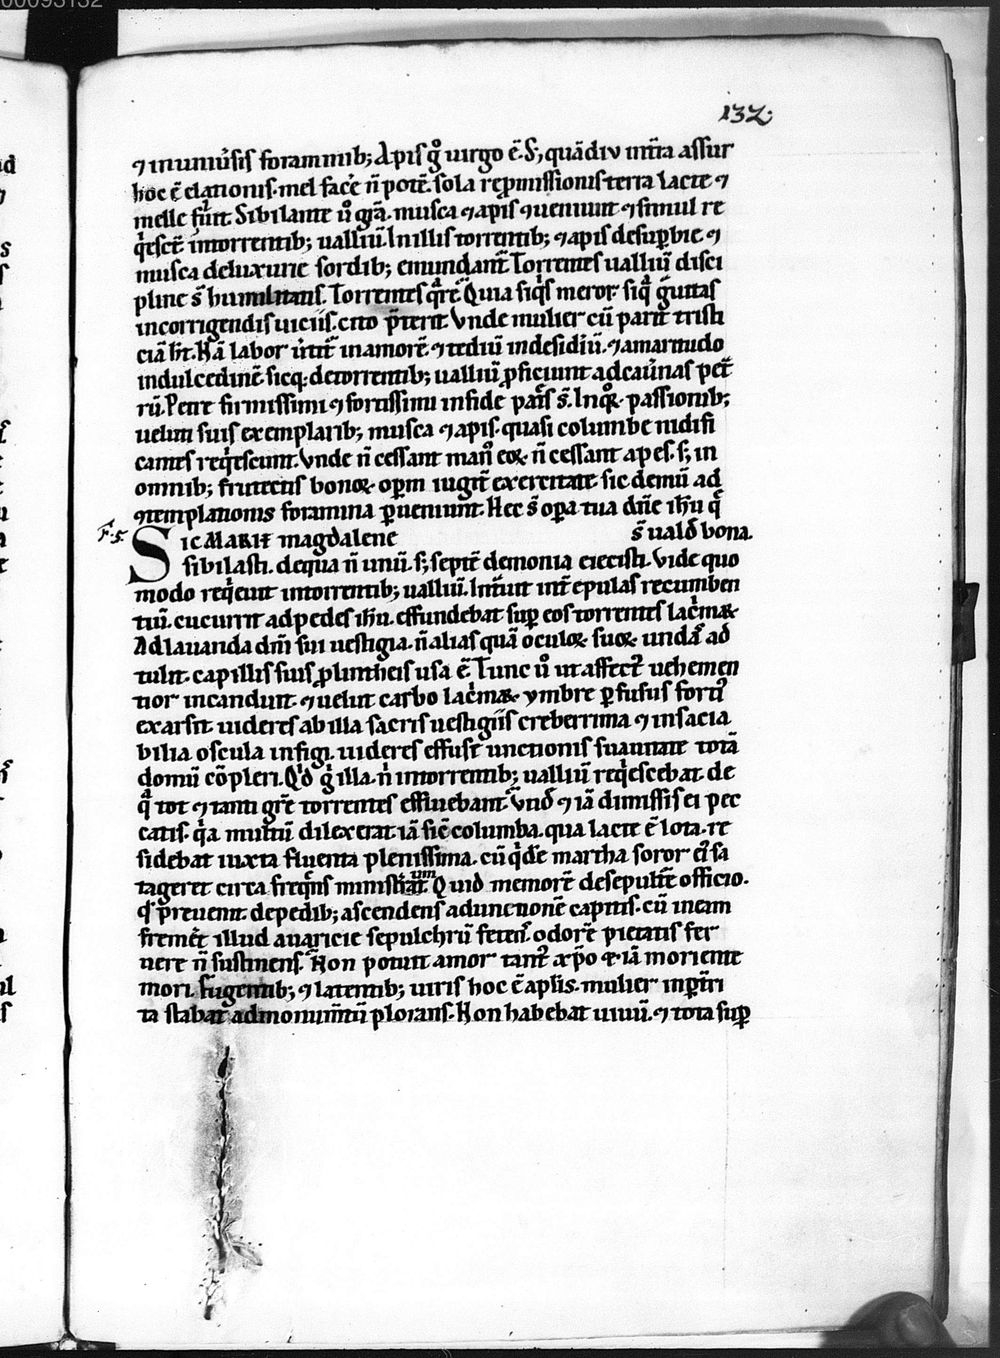 132.
⁊ inuniũsis foraminib; Apis g̊ uirgo ẽ. S;, quãdiu int̃ra assur
hoc ẽ elationis. mel facẽ ñ potẽ. sola rep̱missionis terra lacte ⁊
melle fluit. Sibilante ũ gr̃a. musca ⁊ apis ⁊ueniunt ⁊ simul re
q̇esct̃ intorrentib; ualliũ. In illis torrentib; ⁊ apis desup̱bie ⁊
musca deluxurie sordib; emundant̃. Torrentes ualliũ disci
pline s̃ humilitatis. Torrentes q̃re. Quia siq̇s meror. siq̃ g̃uitas
incorrigendis uiciis. cito p̃terit. Vnde mulier cũ parit tristi
ciã h̃t. Nã labor ũtit̃ inamorẽ. ⁊ tediũ indesidiũ. ⁊ amaritudo
indulcedinẽ. sicq; detorrentib; ualliũ p̱ficiunt adcaũnas pet̃
rũ. Petre firmissimi ⁊ fortissimi infide patr̃s s̃. Inquoꝝ passionib;
uelut suis exemplarib; musca ⁊ apis. quasi columbe nidifi
cantes reqiescunt. Vnde ñ cessant man̊ eoꝝ. ñ cessant apes. s; in
omnib; frutectis bonoꝝ op̱rum iugit̃ exercitate. sic demũ ad
⁊templationis foramina p̱ueniunt. Hec s̃ opa tua dñe ihũ q̇
F. 5. SIC MARIE magdalene s̃ ualð bona.
sibilasti. dequa ñ unũ. s; septẽ demonia eiecisti. Vide quo
modo reqieuit intorrentib; ualliũ. Intuit int̃ epulas recumben
tiũ. cucurrit adpedes ihũ. effundebat sup̱ eos torrentes lac̃maꝝ
Adlauanda dñi sui uestigia. ñ alias quã oculoꝝ suoꝝ undas ad
tulit. capillis suis p̱ lintheis usa ẽ. Tunc ũ ut affect̃ uehemen
tior incanduit. ⁊ uelut carbo lac̃maꝝ ymbre p̱fusus forti̊
exarsit uideres ab illa sacris uestigiis creberrima ⁊ insacia
bilia oscula infigi. uideres effuse unctionis suauitate totã
domũ cõpleri. Qð g̊ illa. ñ intorrentib; ualliũ reqiescebat. de
q̃ tot ⁊ tanti gr̃e torrentes effluebant. Vnð ⁊ iã dimissis ei pec
catis. q̃a multũ dilexerat iã sic̃ columba. qua lacte ẽ lota. re
sidebat iuxta fluenta plenissima. cũ q̇dẽ martha soror ei̊ sa
tageret circa freq̃ns ministerium. Quid memorẽ desepult̃e officio.
q̃ p̃reuenit. depedib; ascendens aduncxionẽ capitis. cũ ineam
fremeret illud auaricie sepulchrũ fetens. odorẽ pietatis fer
uere ñ sustinens. Non potuit amor tant̊ xp̃o ⁊ iã moriente
mori. fugientib; ⁊ latentib; uiris hoc ẽ apl̃is. mulier inp̱tr̃i
ta stabat admonimentũ plorans. Non habebat uiuũ. ⁊ tota sup̱